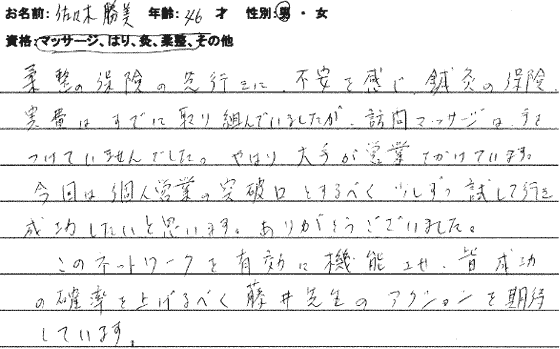 お名前: 佐々木 勝美 年齢: 46 才 性別: 男 ・ 女
資格: マッサージ、はり、灸、柔整、その他
柔整の保険の先行きに、不安を感じ、鍼灸の保険、
実費はすでに取り組んでいましたが、訪問マッサージは、手を
つけていませんでした。やはり大手が営業をかけています。
今回は個人営業の突破口とするべく少しずつ試して行き
成功したいと思います。ありがとうございました。
このネットワークを有効に機能させ、皆成功
の確率を上げるべく藤井先生のアクションを期待
しています。